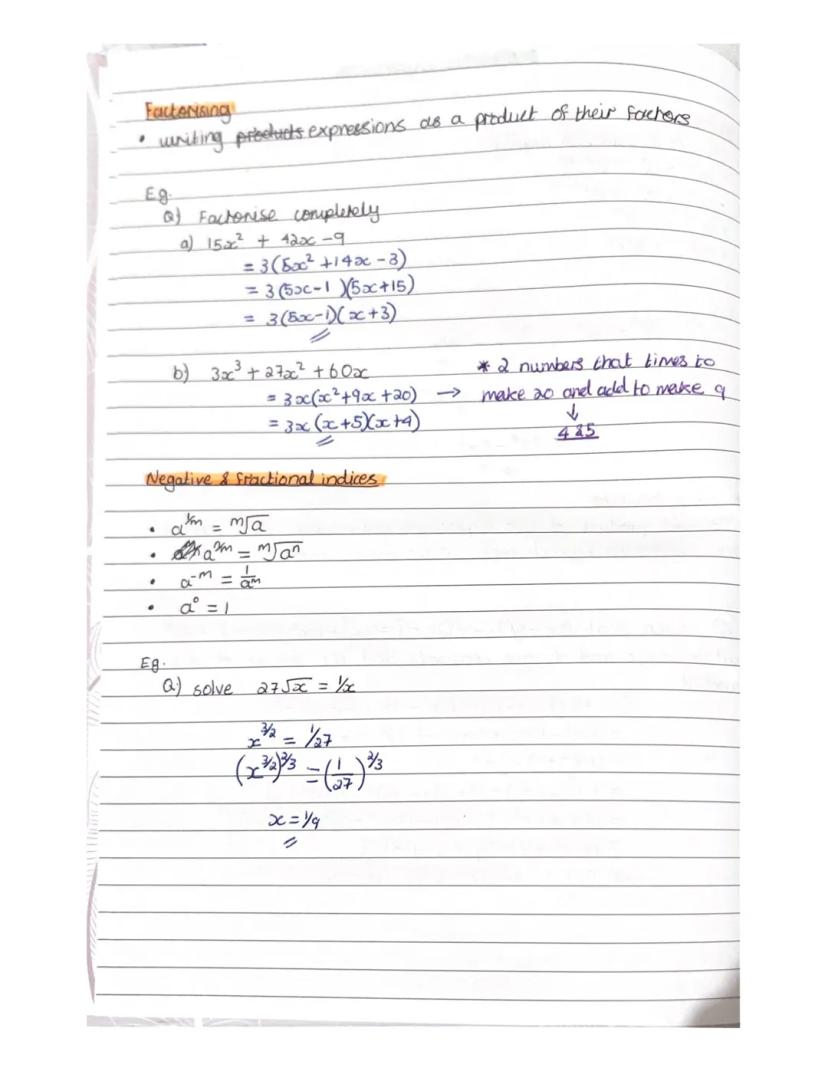 Factorising
• writing products expressions as a product of their factors
Eg.
Q) Factorise completely
a) 15x² + 42x - 9
= 3(5x² + 14x - 3)
= 3(5x-1)(5x+15)
= 3(5x-1)(x+3)
b) 3x³ + 27x² + 60x
= 3x(x²+9x+20) → * 2 numbers that times to
make 20 and add to make 9
= 3x(x+5)(x+4)
↓
4 & 5
Negative & fractional indices
• a^1/m = ᵐ√a
• a^n/m = ᵐ√aⁿ
• a^-m = 1/aᵐ
• a⁰ = 1
Eg.
Q) solve 27√x = 1/x
x^3/2 = 1/27
(x^3/2)^2/3 = (1/27)^2/3
x = 1/9